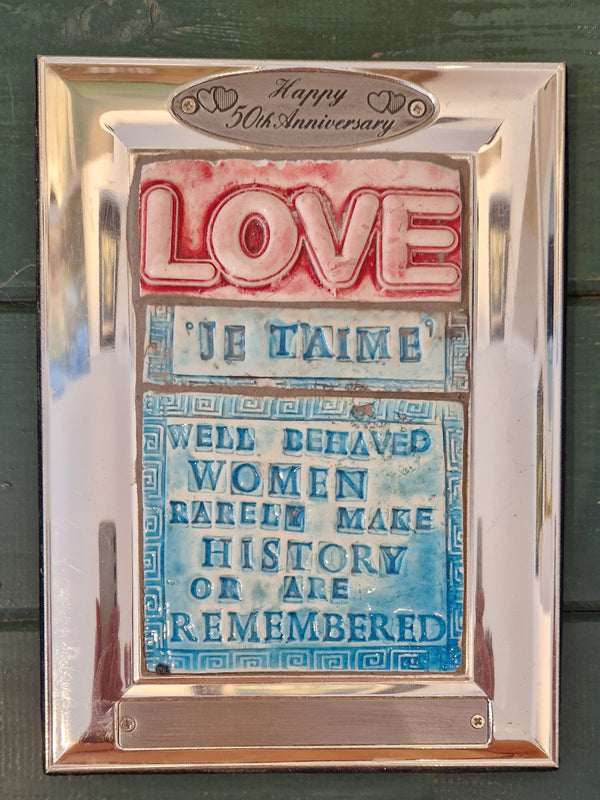 Happy
50th Anniversary
LOVE
'JE T'AIME'
WELL BEHAVED
WOMEN
RARELY MAKE
HISTORY
OR ARE
REMEMBERED